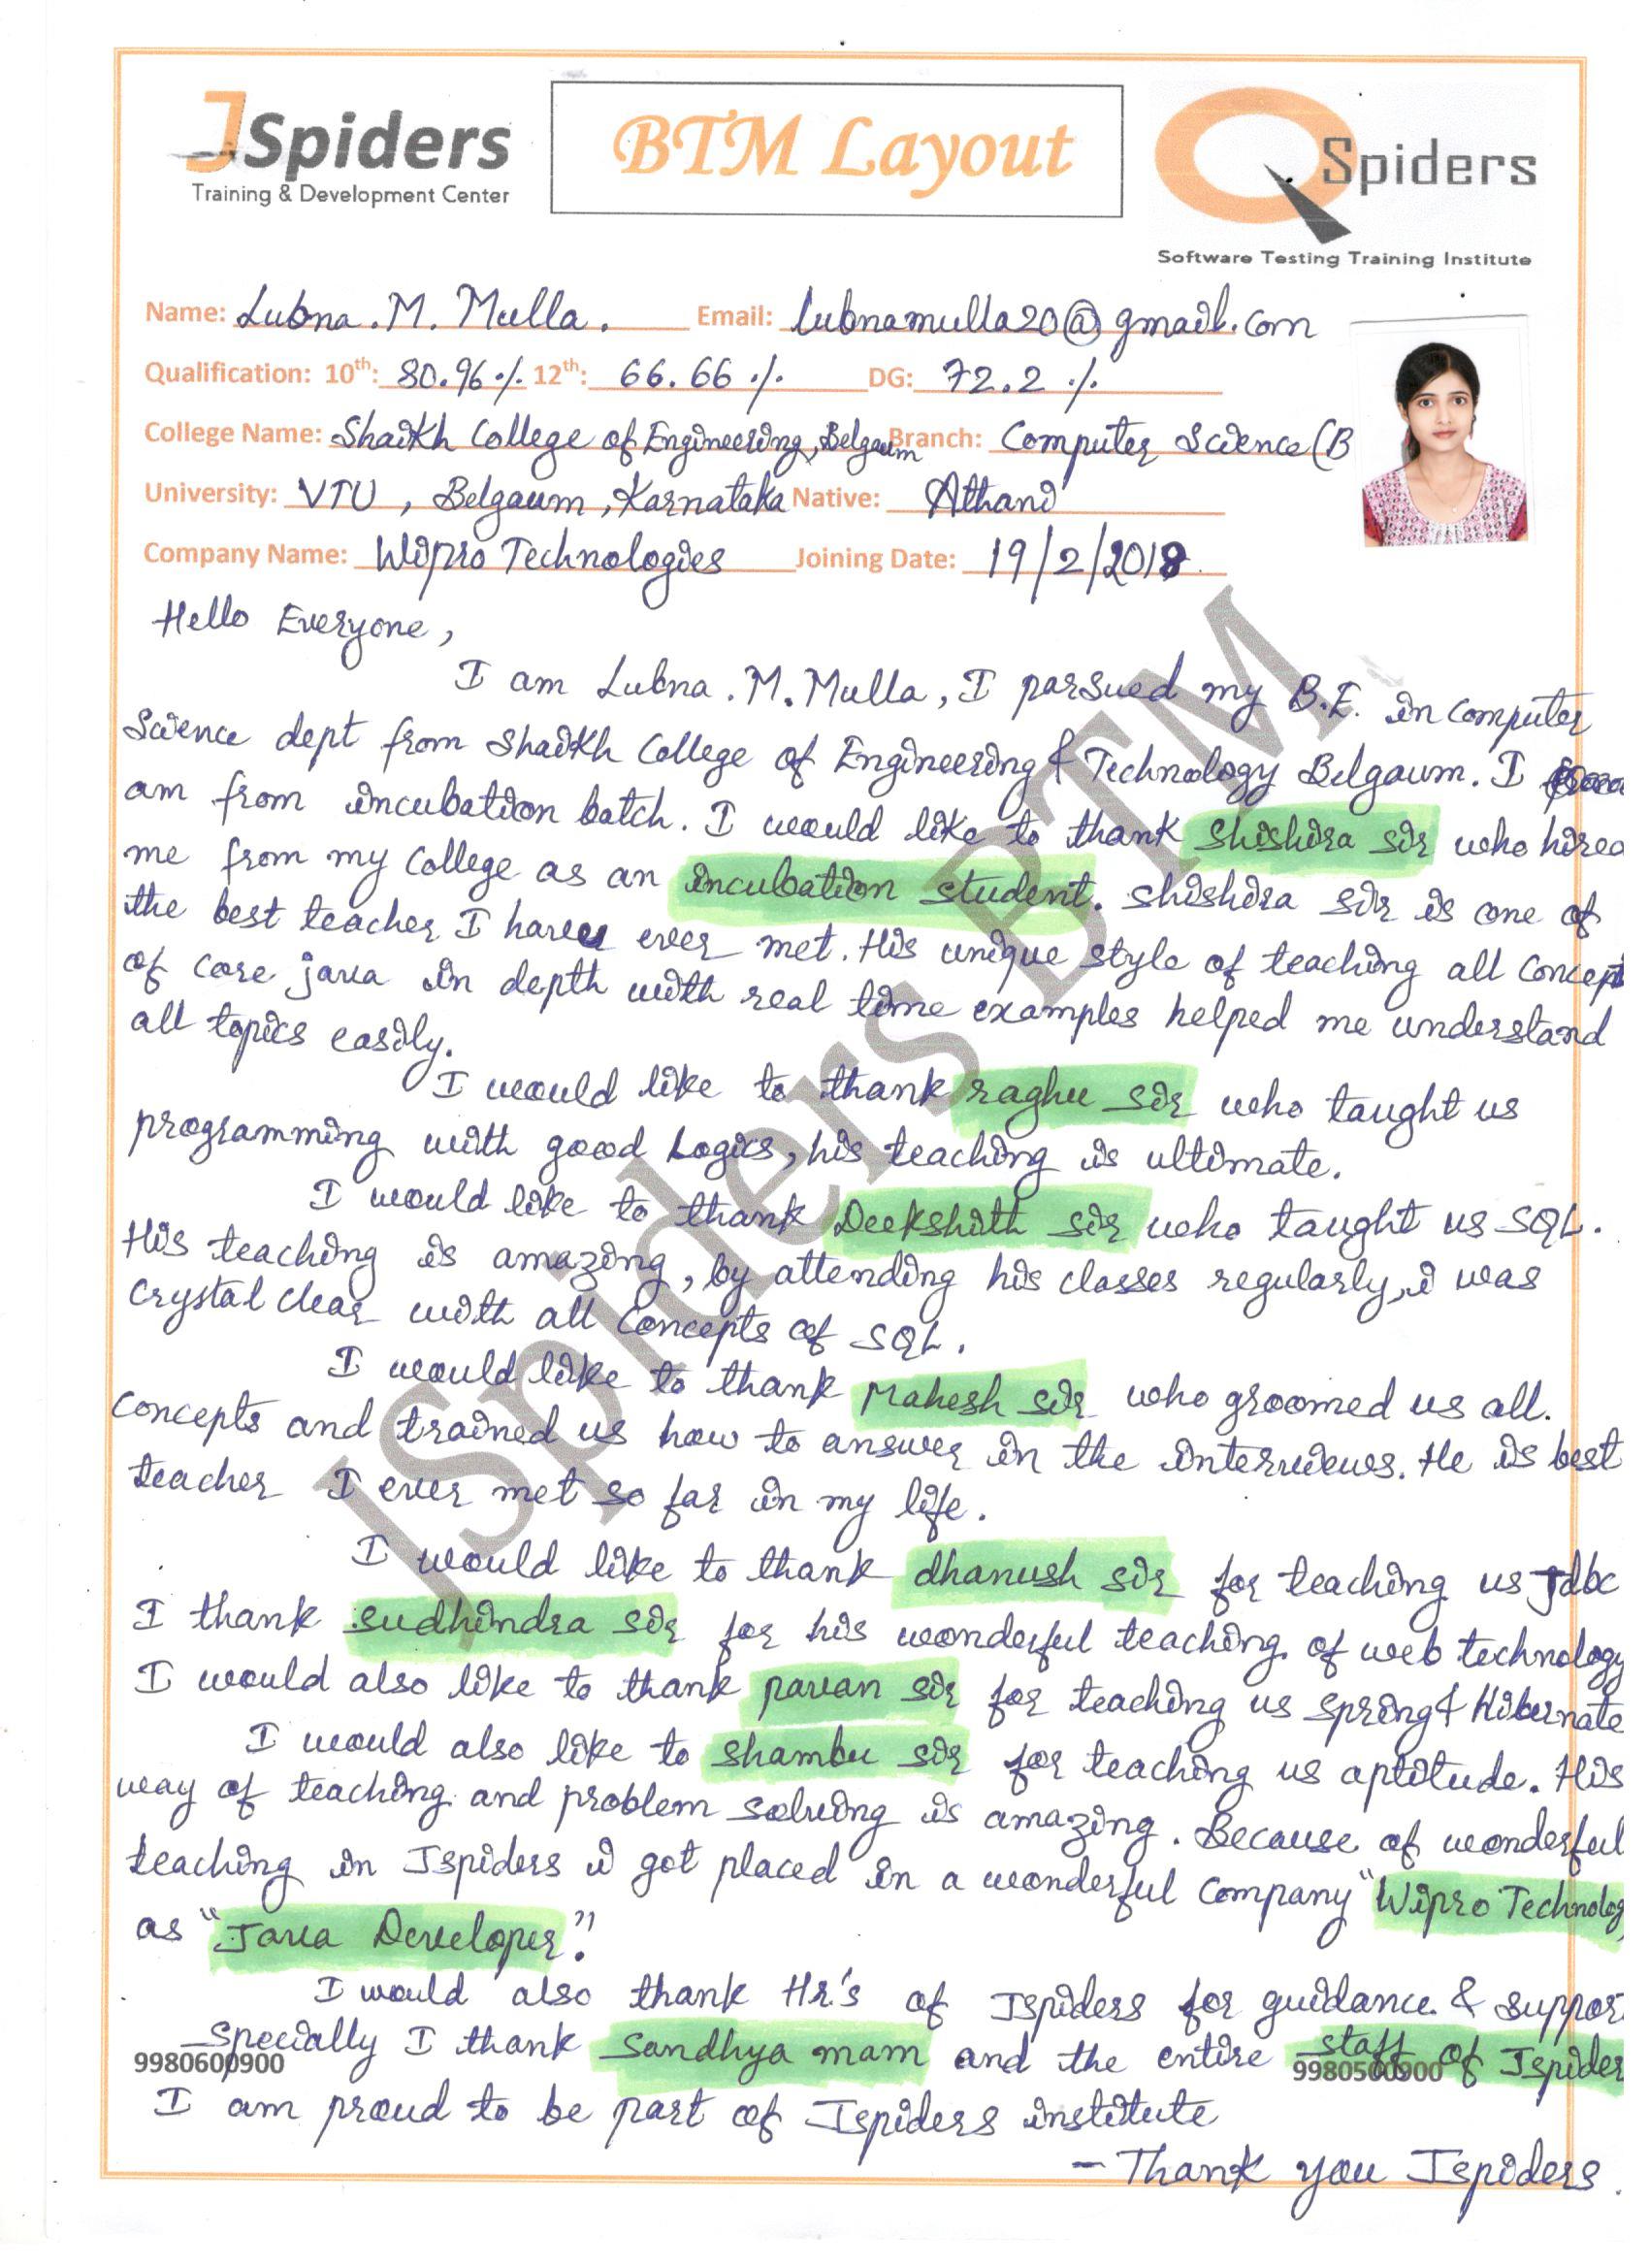 JSpiders
Training & Development Center
BTM Layout
QSpiders
Software Testing Training Institute
Name: Lubna . M. Mulla . Email: lubnamulla20@gmail.com
Qualification: 10th: 80.96 % 12th: 66.66 % DG: 72.2 %
College Name: Shaikh College of Engineering, Belgaum Branch: Computer Science (B
University: VTU , Belgaum , Karnataka Native: Athani
Company Name: Wipro Technologies Joining Date: 19/2/2018
Hello Everyone,
I am Lubna . M. Mulla, I parsued my B.E. in computer
Science dept from Shaikh College of Engineering & Technology Belgaum. I
am from incubation batch. I would like to thank Shishira sir who hired
me from my College as an incubation student. Shishira sir is one of
the best teacher I have ever met. His unique style of teaching all concept
of core java in depth with real time examples helped me understand
all topics easily.
I would like to thank raghu sir who taught us
programming with good Logics, his teaching is ultimate.
I would like to thank Deekshith sir who taught us SQL.
His teaching is amazing, by attending his classes regularly, i was
crystal clear with all concepts of SQL.
I would like to thank Mahesh sir who groomed us all.
concepts and trained us how to answer in the interviews. He is best
teacher I ever met so far in my life.
I would like to thank dhanush sir for teaching us Jdbc
I thank sudhindra sir for his wonderful teaching of web technology
I would also like to thank pavan sir for teaching us spring & Hibernate
I would also like to shambu sir for teaching us aptitude. His
way of teaching and problem solving is amazing. Because of wonderful
teaching in Jspiders i got placed in a wonderful company "Wipro Technolog
as "Java Developer".
I would also thank Hr's of Jspiders for guidance & suppor
Specially I thank Sandhya mam and the entire staff of Jspider
9980600900 9980500900
I am proud to be part of Jspiders institute
- Thank you Jspiders.
JSpiders BTM